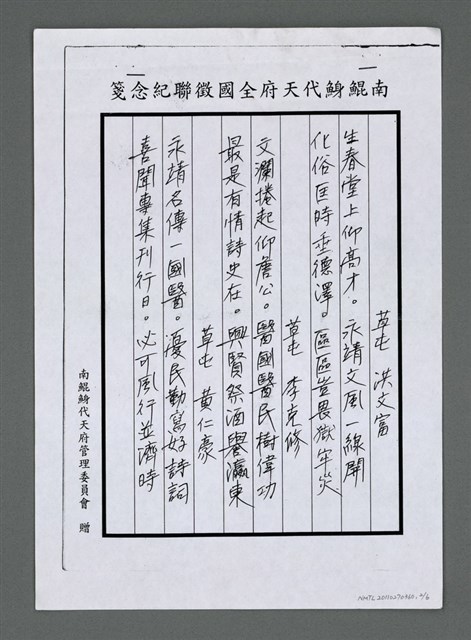 南鯤鯓代天府全國徵聯紀念箋
草屯 洪文富
生春堂上仰高才。永靖文風一線開
化俗匡時垂德澤。區區豈畏獄牢災
草屯 李克修
文瀾捲起仰詹公。醫國醫民樹偉功
最是有情詩史在。興賢祭酒譽瀛東
草屯 黃仁豪
永靖名傳一國醫。憂民勤寫好詩詞
喜聞專集刊行日。必可風行並濟時
南鯤鯓代天府管理委員會 贈